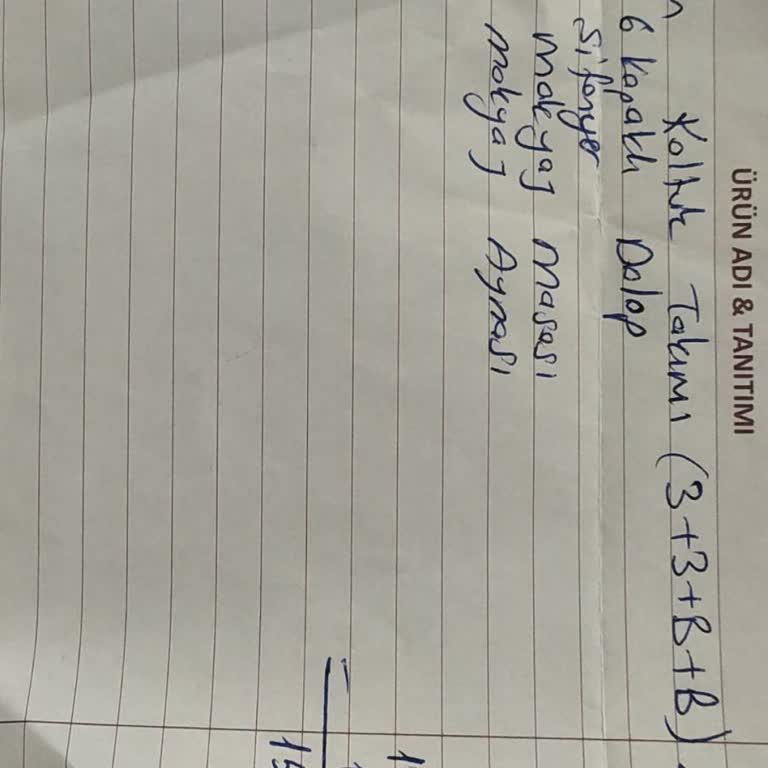 ÜRÜN ADI & TANITIMI
Koltuk Takımı (3+3+B+B)
6 Kapaklı Dolap
Şifonyer
Makyaj Masası
Makyaj Aynası